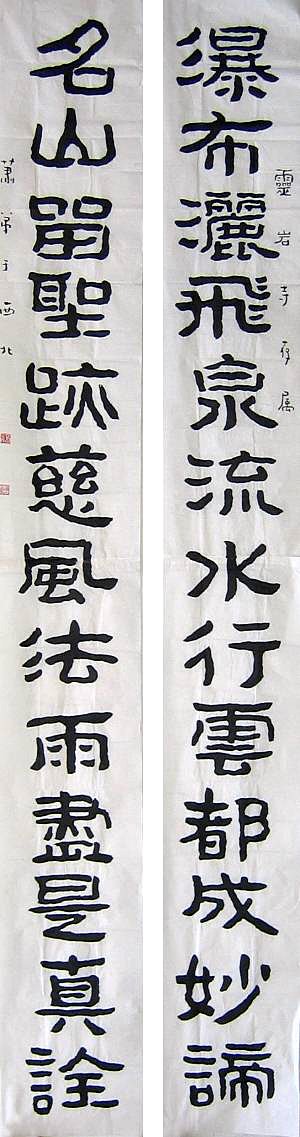 靈岩寺存属
瀑布灑飛泉流水行雲都成妙諦
名山留聖跡慈風法雨盡是真詮
蕭于西北